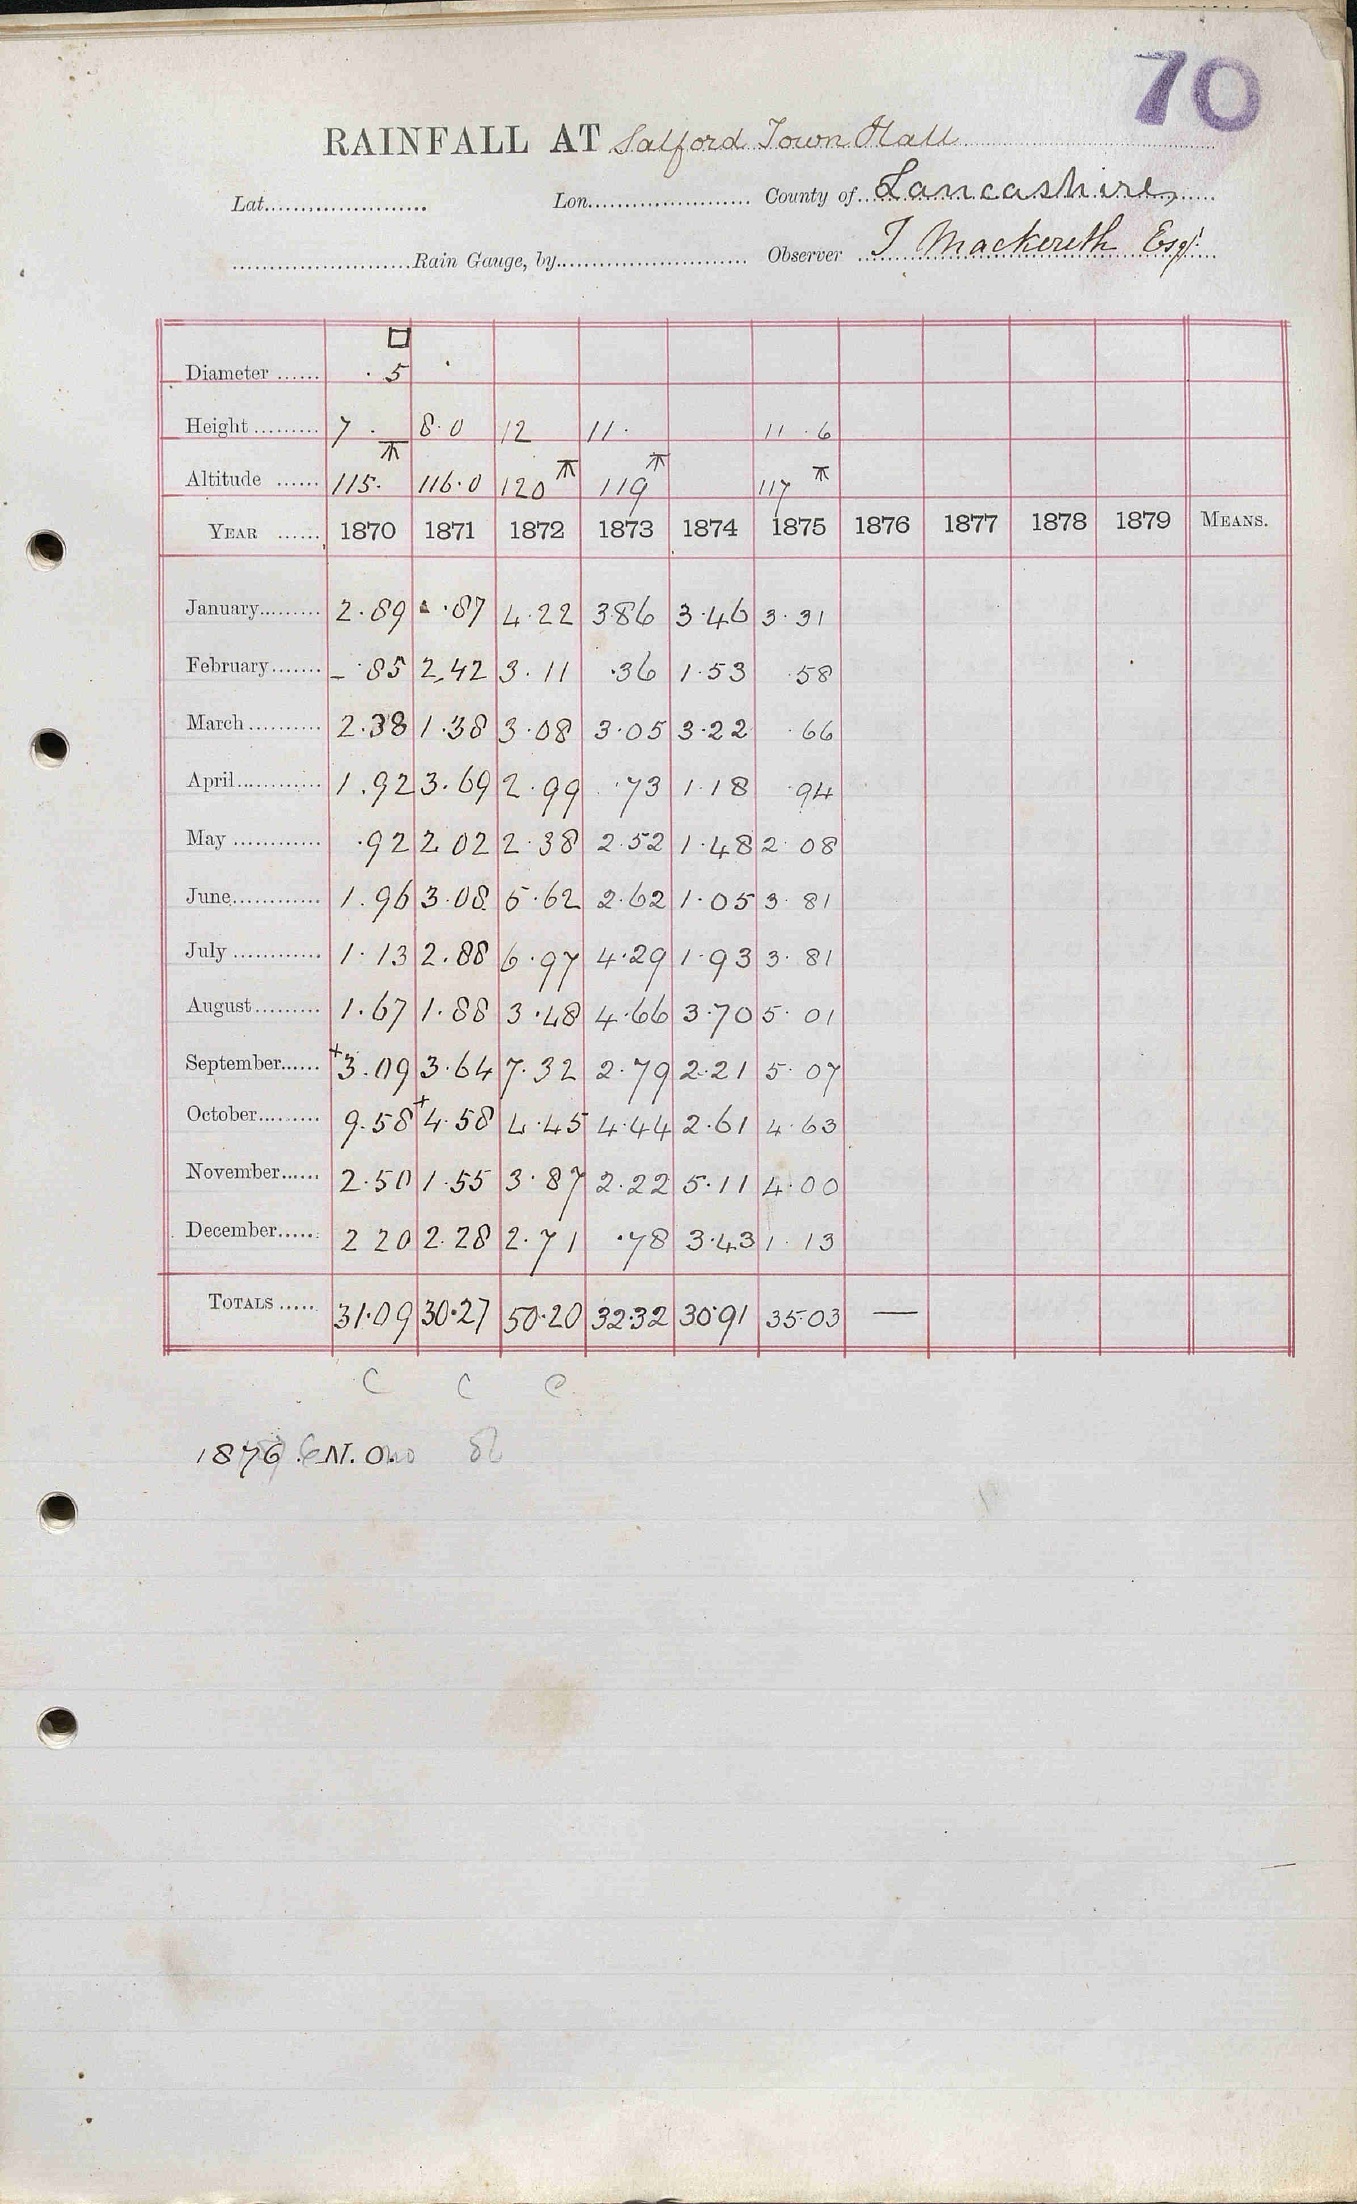 70
RAINFALL AT Salford Town Hall
Lat. Lon. County of Lancashire
Rain Gauge, by Observer T Mackereth Esqr.
Diameter ...... □ . 5
Height ......... 7 . 8.0 12 11. 11 . 6
Altitude ...... 115. 116.0 120 119 117
YEAR ...... 1870 1871 1872 1873 1874 1875 1876 1877 1878 1879 MEANS.
January......... 2.89 .87 4.22 3.86 3.46 3.31
February....... - .85 2.42 3.11 .36 1.53 .58
March .......... 2.38 1.38 3.08 3.05 3.22 .66
April............ 1.92 3.69 2.99 .73 1.18 .94
May ............ .92 2.02 2.38 2.52 1.48 2.08
June............ 1.96 3.08 5.62 2.62 1.05 3.81
July ............ 1.13 2.88 6.97 4.29 1.93 3.81
August......... 1.67 1.88 3.48 4.66 3.70 5.01
September...... +3.09 3.64 7.32 2.79 2.21 5.07
October......... 9.58 +4.58 4.45 4.44 2.61 4.63
November...... 2.50 1.55 3.87 2.22 5.11 4.00
December...... 2 20 2.28 2.71 .78 3.43 1.13
TOTALS ..... 31.09 30.27 50.20 32.32 30.91 35.03 —
C C C
1876 N. O.